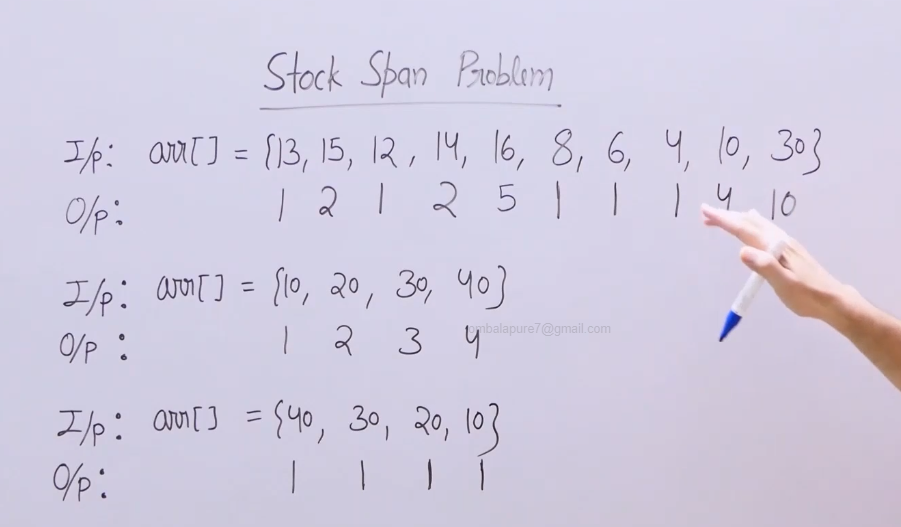 Stock Span Problem
I/p: arr[] = {13, 15, 12, 14, 16, 8, 6, 4, 10, 30}
O/p: 1 2 1 2 5 1 1 1 4 10
I/p: arr[] = {10, 20, 30, 40}
O/p: 1 2 3 4
ombalapure7@gmail.com
I/p: arr[] = {40, 30, 20, 10}
O/p: 1 1 1 1